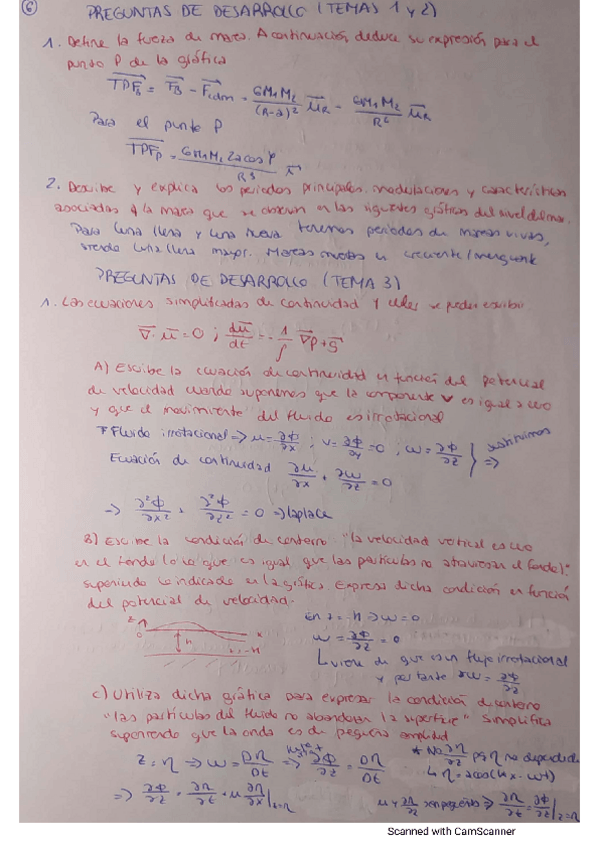 6
PREGUNTAS DE DESARROLLO (TEMAS 1 y 2)
1. Define la fuerza de marea. A continuación deduce su expresión para el
punto P de la gráfica
TPF_B = F_B - F_cdm = GM₁M₂/(R-a)² u_R - GM₁M₂/R² u_R
Para el punto P
TPF_P = GM₁M₂ 2a cos φ/R³
2. Describe y explica los periodos principales, modulaciones y características
asociadas a la marea que se observan en las siguientes gráficas del nivel del mar.
Para luna llena y luna nueva tenemos periodos de mareas vivas,
siendo luna llena mayor. Mareas muertas en creciente/menguante
PREGUNTAS DE DESARROLLO (TEMA 3)
1. Las ecuaciones simplificadas de continuidad y euler se pueden escribir
∇·u = 0 ; du/dt = -1/ρ ∇p + g
A) Escribe la ecuación de continuidad en función del potencial
de velocidad cuando suponemos que la componente v es igual a cero
y que el movimiento del fluido es irrotacional
Fluido irrotacional => u = ∂Φ/∂x ; v = ∂Φ/∂y = 0 ; w = ∂Φ/∂z } sustituimos =>
Ecuación de continuidad ∂u/∂x + ∂w/∂z = 0
=> ∂²Φ/∂x² + ∂²Φ/∂z² = 0 => laplace
B) Escribe la condición de contorno "la velocidad vertical es cero
en el fondo (o lo que es igual que las partículas no atraviesan el fondo)",
suponiendo lo indicado en la gráfica. Expresa dicha condición en función
del potencial de velocidad.
z
0
x
h
z=-h
En z = -h => w = 0
w = ∂Φ/∂z = 0
viene de que es un flujo irrotacional
y por tanto w = ∂Φ/∂z
C) Utiliza dicha gráfica para expresar la condición de contorno
"las partículas del fluido no abandonan la superficie" Simplifica
suponiendo que la onda es de pequeña amplitud
z = η => w = Dη/Dt => ∂Φ/∂z = Dη/Dt
* No ∂η/∂y pq η no depende de
η = a cos(kx - ωt)
=> ∂Φ/∂z = ∂η/∂t + u ∂η/∂x |z=η
u y ∂η/∂x son pequeños => ∂η/∂t = ∂Φ/∂z |z=η
Scanned with CamScanner